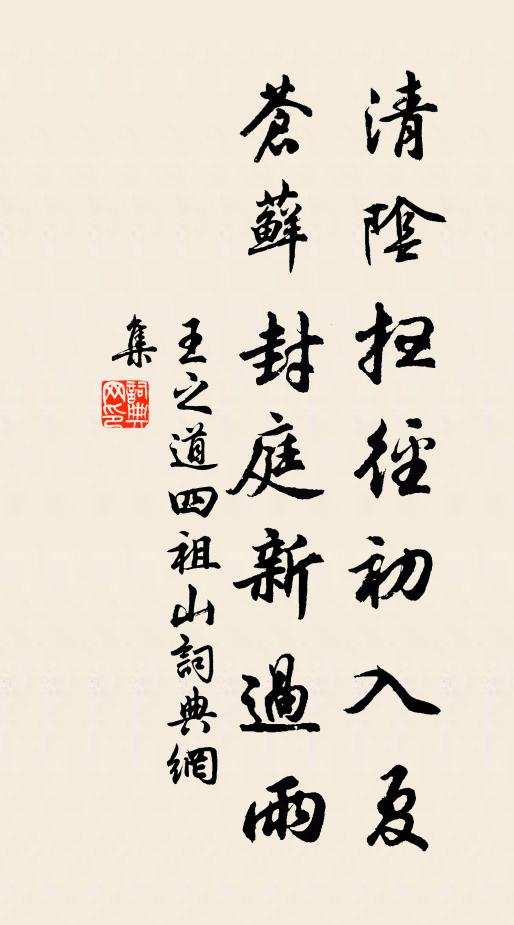 清陰扫徑初入夏
蒼蘚封庭新過雨
王之道四祖山詞典網
集
詞典网印